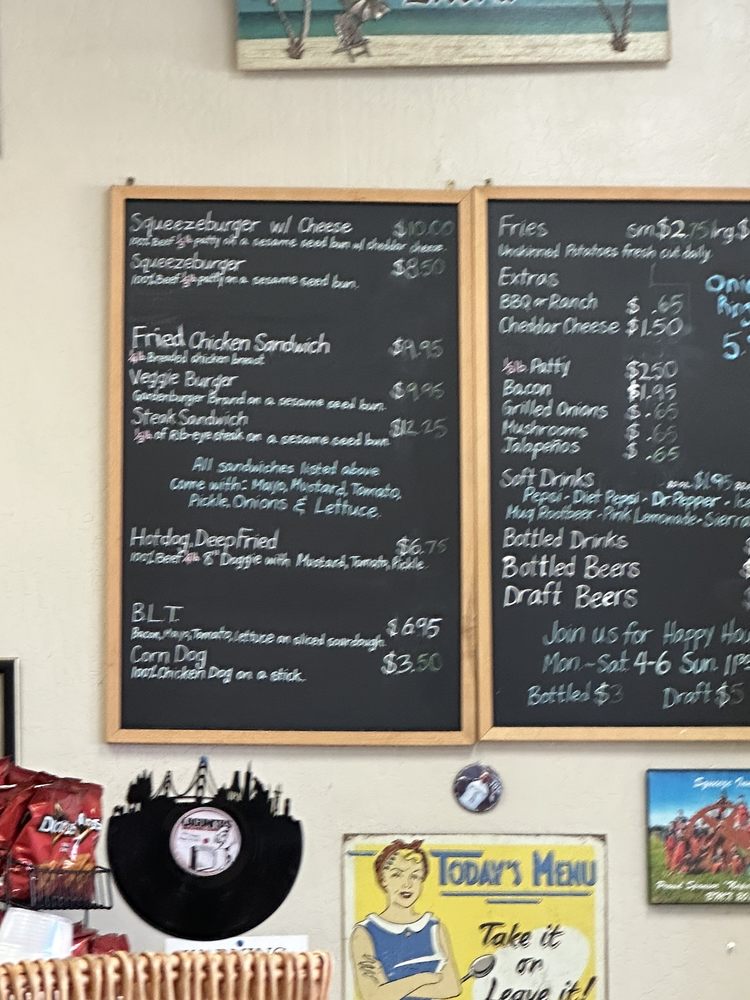 Squeezeburger w/ Cheese $10.00
100% Beef 1/3 lb patty on a sesame seed bun w/ cheddar cheese.
Squeezeburger $8.50
100% Beef 1/3 lb patty on a sesame seed bun.
Fried Chicken Sandwich $9.95
Breaded chicken breast
Veggie Burger $9.95
Gardenburger Brand on a sesame seed bun.
Steak Sandwich $12.25
of Rib-eye steak on a sesame seed bun
All sandwiches listed above
come with: Mayo, Mustard, Tomato,
Pickle, Onions & Lettuce.
Hotdog, Deep Fried $6.75
100% Beef 8" Doggie with Mustard, Tomato, Pickle.
B.L.T. $6.95
Bacon, Mayo, Tomato, lettuce on sliced sourdough.
Corn Dog $3.50
100% Chicken Dog on a stick.
Fries sm. $2.75 lrg. $
Unskinned Potatoes fresh cut daily.
Extras
BBQ or Ranch $ .65
Cheddar Cheese $1.50
Patty $2.50
Bacon $1.95
Grilled Onions $ .65
Mushrooms $ .65
Jalapeños $ .65
Soft Drinks $1.95
Pepsi - Diet Pepsi - Dr Pepper -
Mug Rootbeer - Pink Lemonade - Sierra
Bottled Drinks
Bottled Beers
Draft Beers
Join us for Happy Ho
Mon - Sat 4-6 Sun.
Bottled $3 Draft $5
Doritos
TODAY'S MENU
Take it
or
Leave it!
WARNING